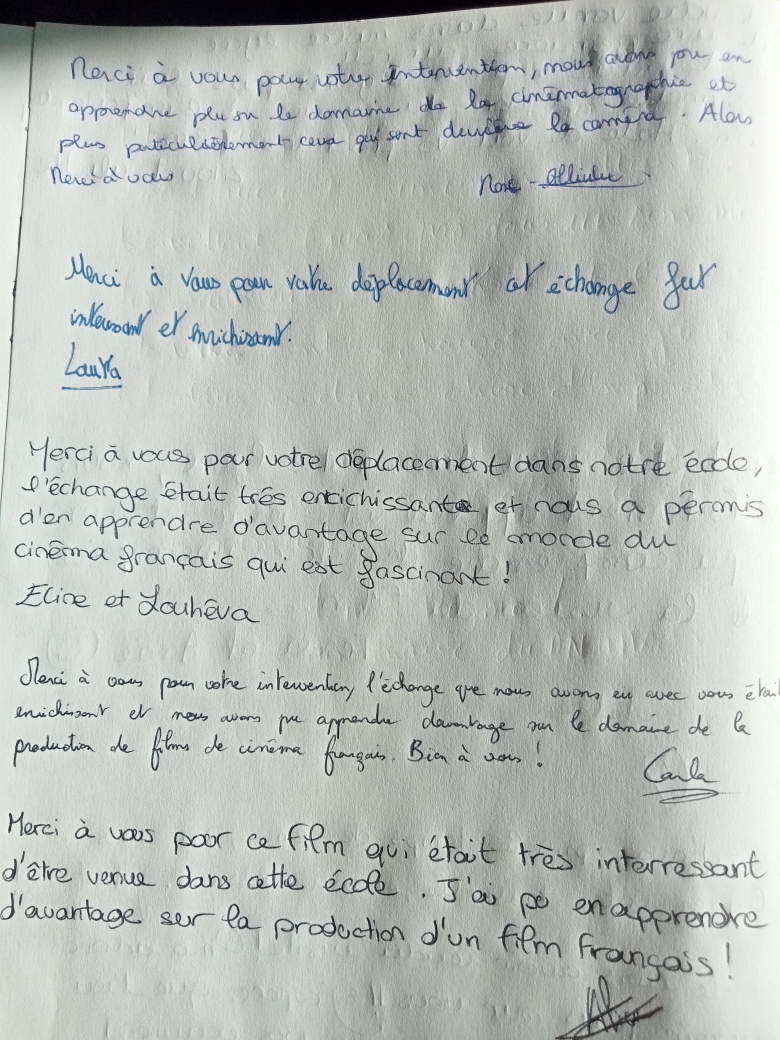 Merci à vous pour votre intervention, nous avons pu, en
apprendre plus sur le domaine de la cinématographie et
plus particulièrement ceux qui sont derrière la caméra. Alors
Merci à vous
Merci à vous pour votre déplacement et échange fut
interessant et enrichissant.
Laura
Merci à vous pour votre déplacement dans notre école,
l'échange était très enrichissant et nous a permis
d'en apprendre d'avantage sur le monde du
cinéma français qui est fascinant !
Eline et Louhéva
Merci à vous pour votre intervention, l'échange que nous avons eu avec vous était
enrichissant et nous avons pu apprendre davantage sur le domaine de la
production de films de cinéma français. Bien à vous !
Carla
Merci à vous pour ce film qui était très interressant
d'être venue dans cette école. J'ai pu en apprendre
d'avantage sur la production d'un film français !